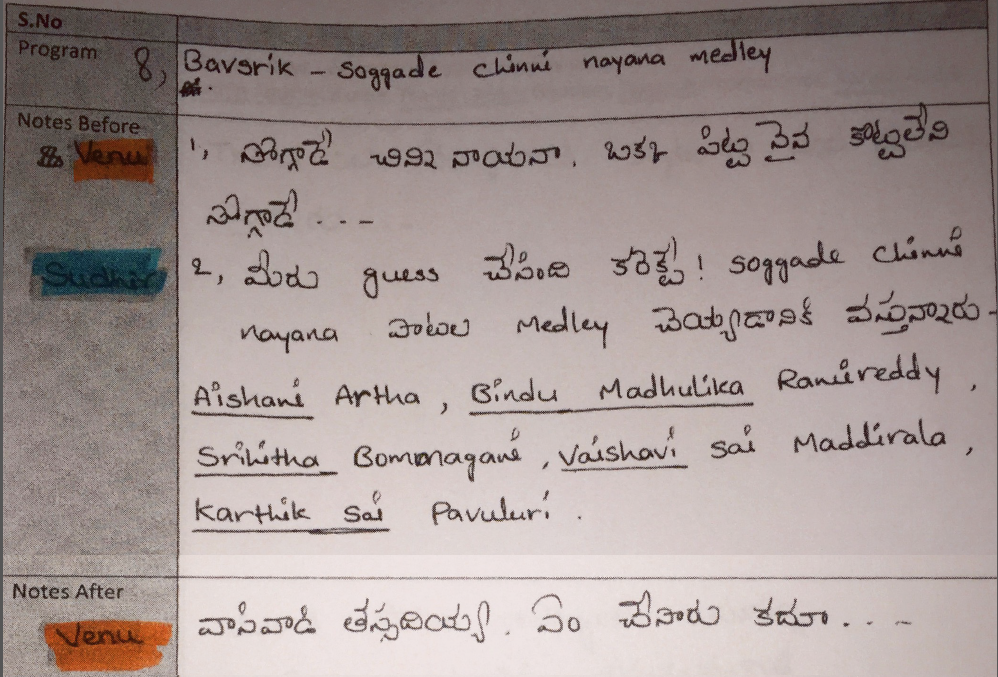 S.No
Program 8, Bavsrik - Soggade chinni nayana medley
Notes Before
Venu 1, సొగ్గాడే చిన్ని నాయనా, ఒకక పిట్ట నైన కొట్టలేని
సొగ్గాడే ...
Sudhir 2, మీరు guess చేసింది కరెక్టే! Soggade chinni
nayana పాటల Medley చెయ్యడానికి వస్తున్నారు -
Aishani Artha, Bindu Madhulika Ramireddy,
Srihitha Bommagani, Vaishavi sai Maddirala,
Karthik sai Pavuluri.
Notes After
Venu వాసివాడి తస్సదియ్య. ఏం చేసారు కదూ....